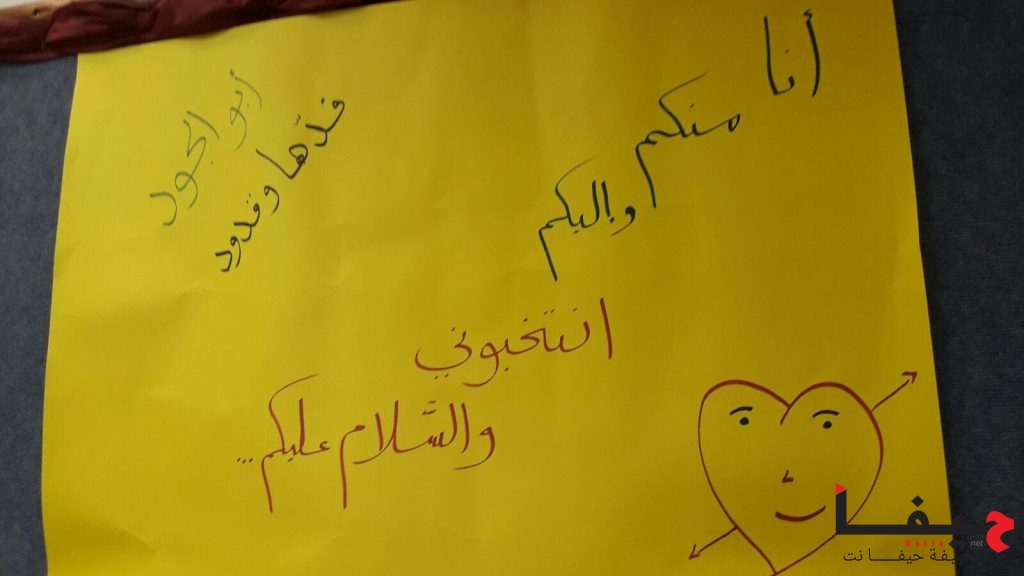 أنا
منكم
وإليكم
أبو الجود
قدّها وقدود
انتخبوني
والسَّلام عليكم...
حيفا
net
يفة حيفا نت